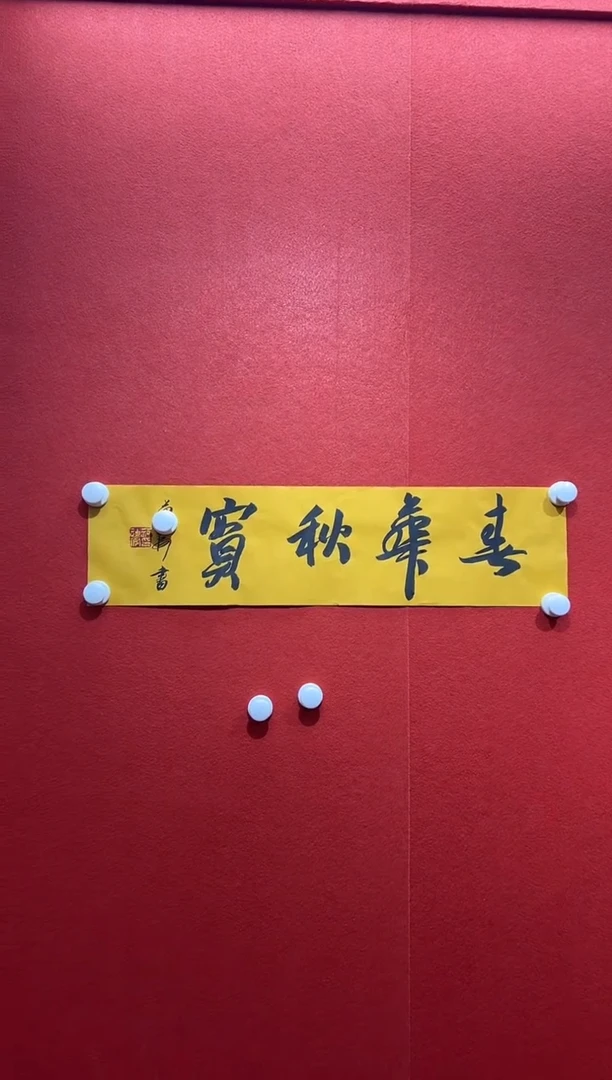 春華秋實
書